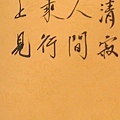 清寂
人間
乘行
上見